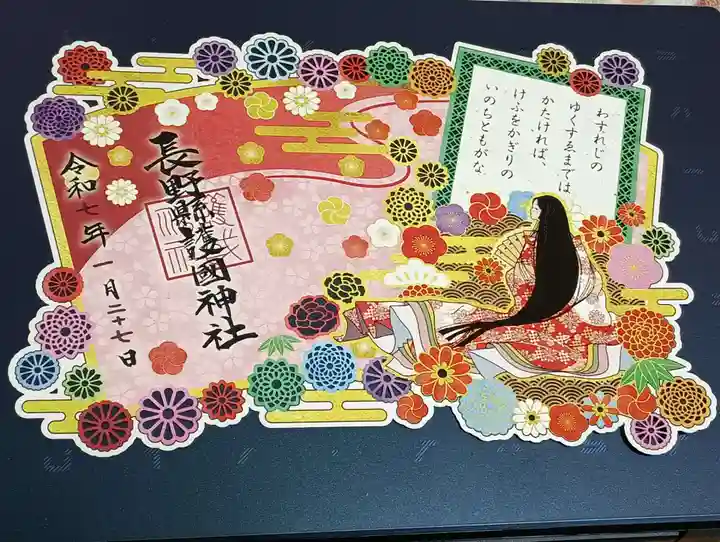 わすれじの
ゆくすゑまでは
かたければ、
けふをかぎりの
いのちともがな
長野縣護國神社
令和七年一月二十七日